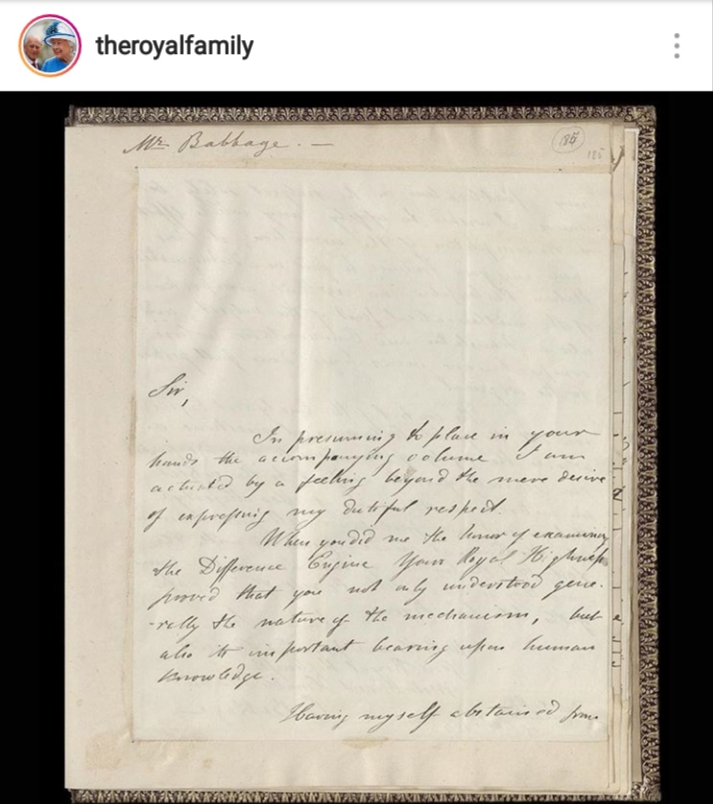 theroyalfamily
Mr. Babbage. —
186
185
Sir,
In presuming to place in your
hands the accompanying volume I am
actuated by a feeling beyond the mere desire
of expressing my dutiful respect.
When you did me the honor of examining
the Difference Engine Your Royal Highness
proved that you not only understood gene-
-rally the nature of the mechanism, but
also its important bearing upon human
knowledge.
Having myself abstained from